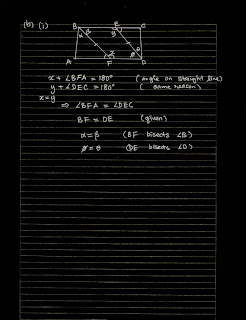 (b) (i)
B E C
α β y
x φ θ
A F D
x + ∠BFA = 180° (angle on straight line)
y + ∠DEC = 180° (same reason)
x = y
⇒ ∠BFA = ∠DEC
BF = DE (given)
α = β (BF bisects ∠B)
φ = θ (DE bisects ∠D)